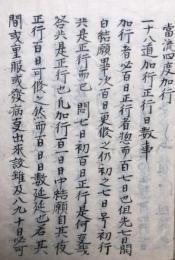 當流四度加行
一十八道加行正行日數事
加行者必百日正行者惣而百七日也但先七日間
白結願畢次百日更修之仍初之七日号初行
共是正行而已　問七日初百日正行是何
答共是正行也凡加行一百日中結願自其夜
正行百日可修之然而百日日數延也若其
間或重服或發病更出來設雖及八九十日必可